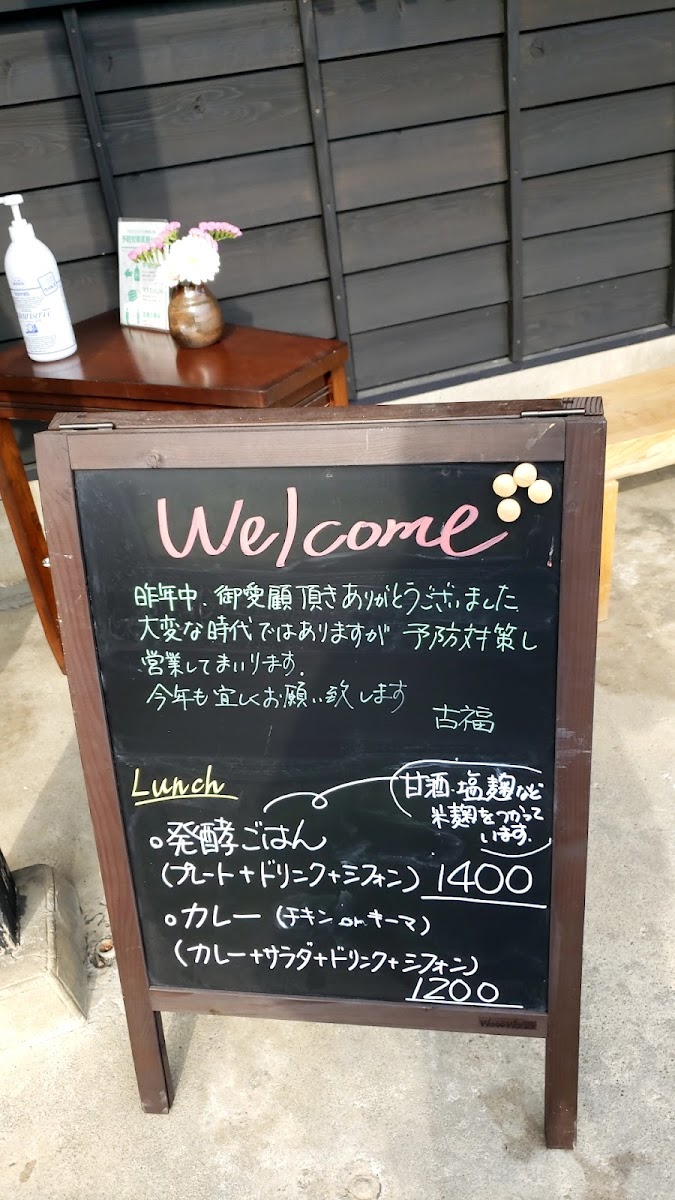 Welcome
昨年中、御愛顧頂きありがとうございました
大変な時代ではありますが 予防対策し
営業してまいります.
今年も宜しくお願い致します
古福
Lunch
甘酒・塩麹など
米麹をつかって
います.
○発酵ごはん
(プレート+ドリンク+シフォン) 1400
○カレー (チキン or キーマ)
(カレー+サラダ+ドリンク+シフォン)
1200